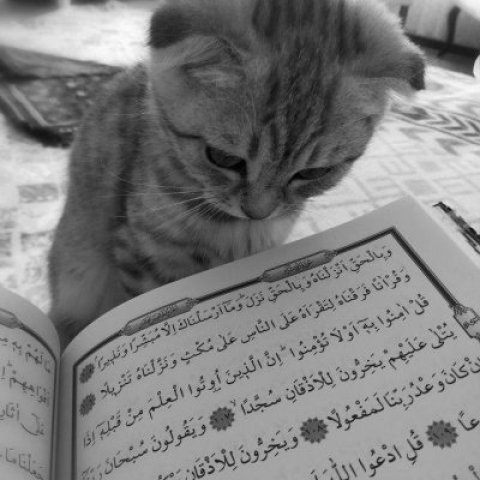 وَبِالْحَقِّ اَنْزَلْنَاهُ وَبِالْحَقِّ نَزَلَ وَمَٓا اَرْسَلْنَاكَ اِلَّا مُبَشِّرًا وَنَذِيرًا
وَقُرْاٰنًا فَرَقْنَاهُ لِتَقْرَاَهُ عَلَى النَّاسِ عَلٰى مُكْثٍ وَنَزَّلْنَاهُ تَنْزِيلًا
قُلْ اٰمِنُوا بِهٖٓ اَوْ لَا تُؤْمِنُوا اِنَّ الَّذِينَ اُوتُوا الْعِلْمَ مِنْ قَبْلِهٖٓ اِذَا
يُتْلٰى عَلَيْهِمْ يَخِرُّونَ لِلْاَذْقَانِ سُجَّدًا وَيَقُولُونَ سُبْحَانَ
كَانَ وَعْدُ رَبِّنَا لَمَفْعُولًا وَيَخِرُّونَ لِلْاَذْقَانِ
قُلِ ادْعُوا